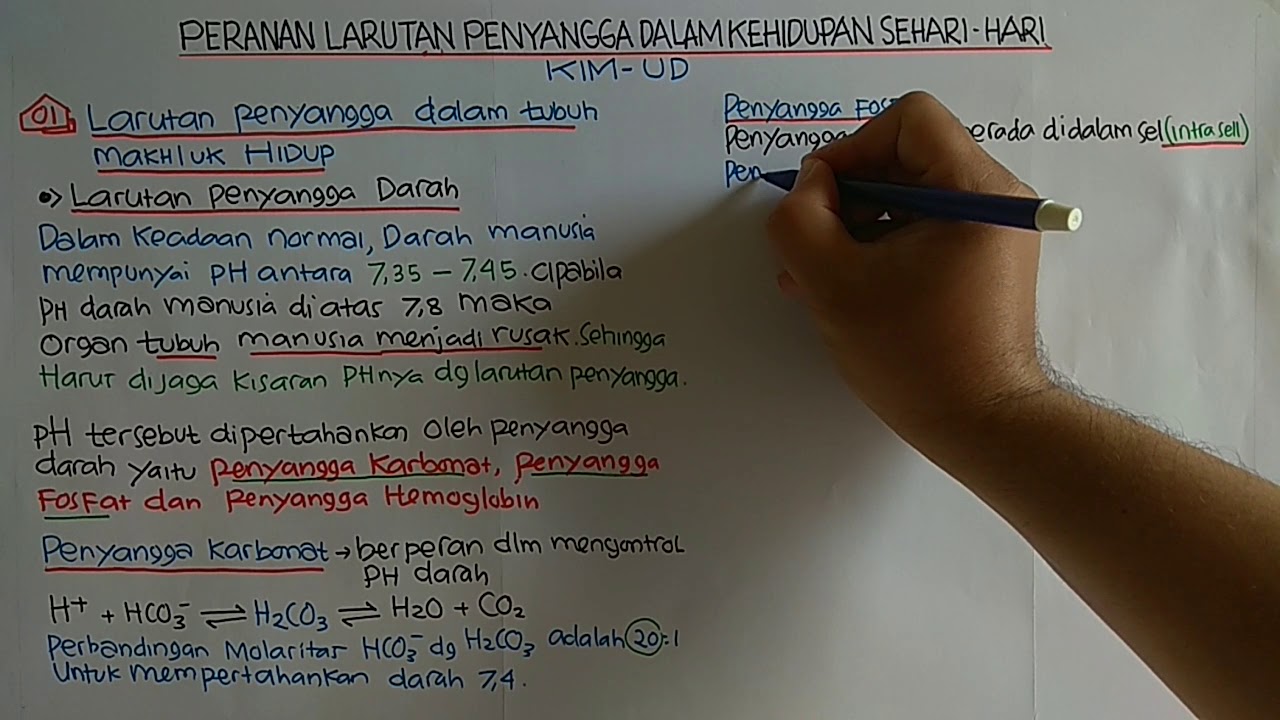 PERANAN LARUTAN PENYANGGA DALAM KEHIDUPAN SEHARI-HARI
KIM-UD
01 Larutan penyangga dalam tubuh
MAKHLUK HIDUP
•> Larutan Penyangga Darah
Dalam Keadaan normal, Darah manusia
mempunyai pH antara 7,35 – 7,45. apabila
pH darah manusia diatas 7,8 maka
Organ tubuh manusia menjadi rusak. Sehingga
Harus dijaga kisaran PHnya dg larutan penyangga.
pH tersebut dipertahankan oleh penyangga
darah yaitu penyangga Karbonat, penyangga
Fosfat dan Penyangga Hemoglobin
Penyangga Karbonat → berperan dlm mengontrol
pH darah
H⁺ + HCO₃⁻ ⇌ H₂CO₃ ⇌ H₂O + CO₂
Perbandingan Molaritas HCO₃⁻ dg H₂CO₃ adalah 20:1
Untuk mempertahankan darah 7,4.
Penyangga
Penyangga didalam sel (intrasell)
Pen